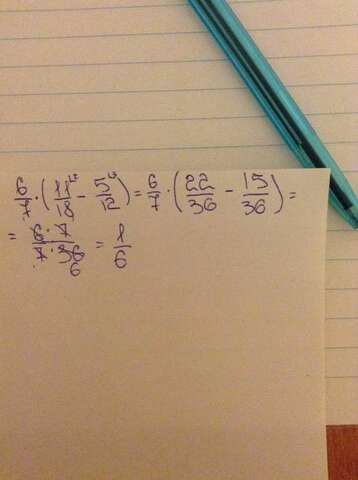 6/7 · (11²/18 - 5³/12) = 6/7 · (22/36 - 15/36) =
= 6 · 7 / 7 · 36 6 = 1/6